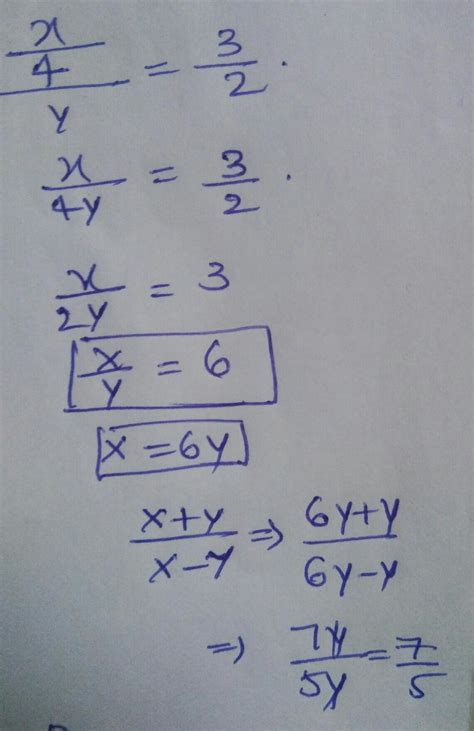 x/4 / y = 3/2 .
x/4y = 3/2 .
x/2y = 3
x/y = 6
x = 6y
x+y / x-y ⇒ 6y+y / 6y-y
⇒ 7y/5y = 7/5